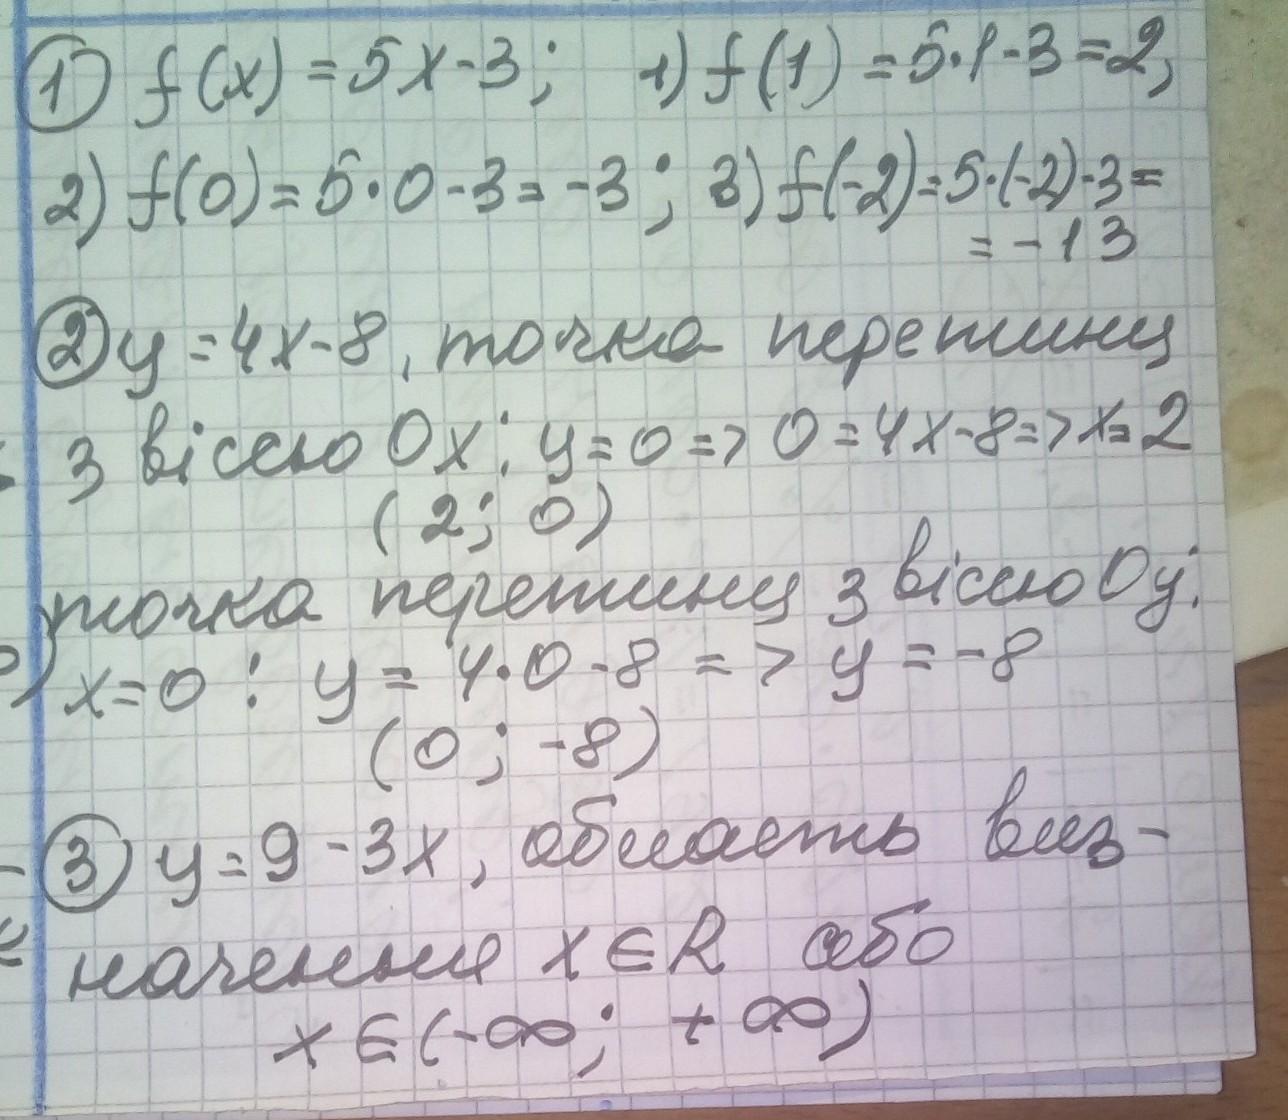 ① f(x) = 5x - 3; 1) f(1) = 5·1 - 3 = 2,
2) f(0) = 5·0 - 3 = -3; 3) f(-2) = 5·(-2) - 3 =
= -13
② y = 4x - 8, точка перетину
з віссю Ox: y = 0 => 0 = 4x - 8 => x = 2
(2; 0)
точка перетину з віссю Oy:
x = 0 : y = 4·0 - 8 => y = -8
(0; -8)
③ y = 9 - 3x, область виз-
начення x ∈ R або
x ∈ (-∞; +∞)